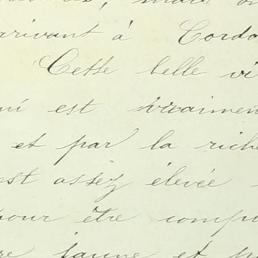 arrivant à Cordo
Cette belle vi
ui est vraimen
et par la riche
est assez élevée
pour être comp
re jaune et p